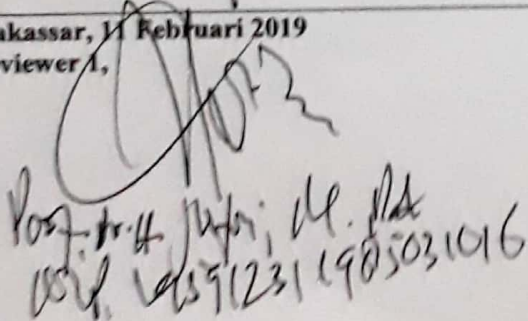 akassar, 11 Februari 2019
viewer 1,
Prof. Dr. H. M. Pd
Nip. 195912311985031016